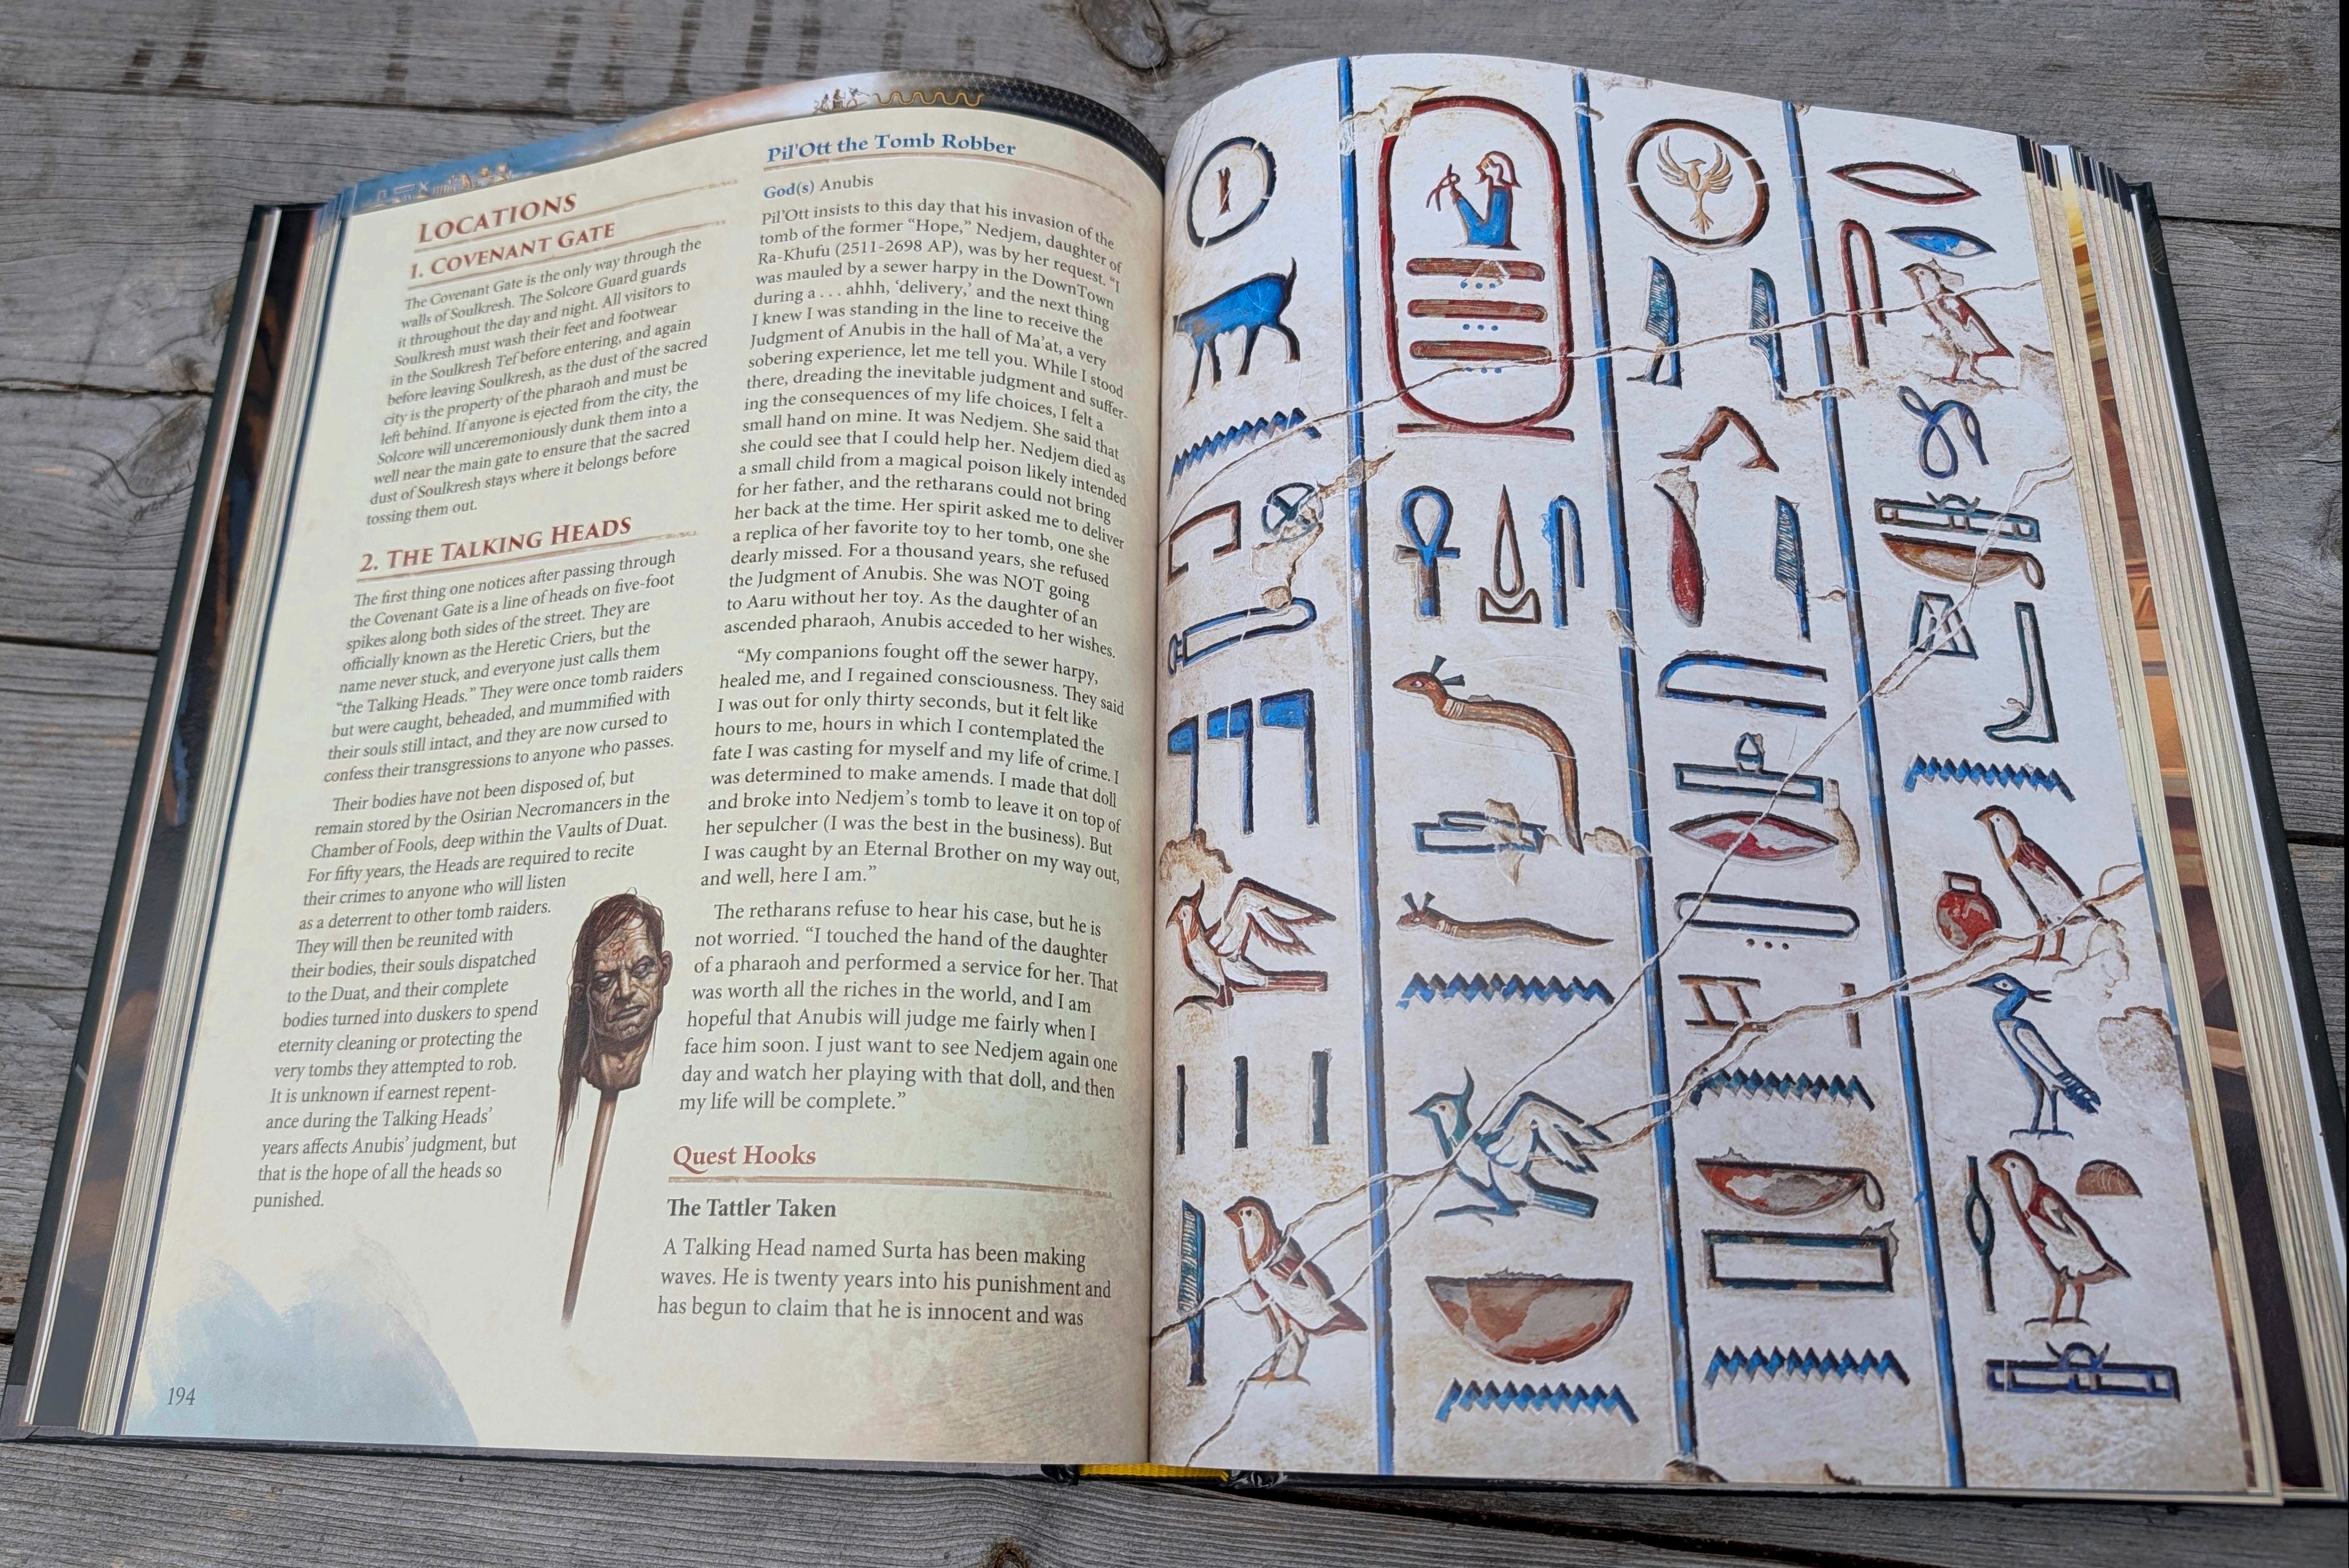 LOCATIONS
1. COVENANT GATE
The Covenant Gate is the only way through the
walls of Soulkresh. The Solcore Guard guards
it throughout the day and night. All visitors to
Soulkresh must wash their feet and footwear
in the Soulkresh Tef before entering, and again
before leaving Soulkresh, as the dust of the sacred
city is the property of the pharaoh and must be
left behind. If anyone is ejected from the city, the
Solcore will unceremoniously dunk them into a
well near the main gate to ensure that the sacred
dust of Soulkresh stays where it belongs before
tossing them out.
2. THE TALKING HEADS
The first thing one notices after passing through
the Covenant Gate is a line of heads on five-foot
spikes along both sides of the street. They are
officially known as the Heretic Criers, but the
name never stuck, and everyone just calls them
“the Talking Heads.” They were once tomb raiders
but were caught, beheaded, and mummified with
their souls still intact, and they are now cursed to
confess their transgressions to anyone who passes.
Their bodies have not been disposed of, but
remain stored by the Osirian Necromancers in the
Chamber of Fools, deep within the Vaults of Duat.
For fifty years, the Heads are required to recite
their crimes to anyone who will listen
as a deterrent to other tomb raiders.
They will then be reunited with
their bodies, their souls dispatched
to the Duat, and their complete
bodies turned into duskers to spend
eternity cleaning or protecting the
very tombs they attempted to rob.
It is unknown if earnest repent-
ance during the Talking Heads’
years affects Anubis’ judgment, but
that is the hope of all the heads so
punished.
194
Pil’Ott the Tomb Robber
God(s) Anubis
Pil’Ott insists to this day that his invasion of the
tomb of the former “Hope,” Nedjem, daughter of
Ra-Khufu (2511-2698 AP), was by her request. “I
was mauled by a sewer harpy in the DownTown
during a . . . ahhh, ‘delivery,’ and the next thing
I knew I was standing in the line to receive the
Judgment of Anubis in the hall of Ma’at, a very
sobering experience, let me tell you. While I stood
there, dreading the inevitable judgment and suffer-
ing the consequences of my life choices, I felt a
small hand on mine. It was Nedjem. She said that
she could see that I could help her. Nedjem died as
a small child from a magical poison likely intended
for her father, and the retharans could not bring
her back at the time. Her spirit asked me to deliver
a replica of her favorite toy to her tomb, one she
dearly missed. For a thousand years, she refused
the Judgment of Anubis. She was NOT going
to Aaru without her toy. As the daughter of an
ascended pharaoh, Anubis acceded to her wishes.
“My companions fought off the sewer harpy,
healed me, and I regained consciousness. They said
I was out for only thirty seconds, but it felt like
hours to me, hours in which I contemplated the
fate I was casting for myself and my life of crime. I
was determined to make amends. I made that doll
and broke into Nedjem’s tomb to leave it on top of
her sepulcher (I was the best in the business). But
I was caught by an Eternal Brother on my way out,
and well, here I am.”
The retharans refuse to hear his case, but he is
not worried. “I touched the hand of the daughter
of a pharaoh and performed a service for her. That
was worth all the riches in the world, and I am
hopeful that Anubis will judge me fairly when I
face him soon. I just want to see Nedjem again one
day and watch her playing with that doll, and then
my life will be complete.”
Quest Hooks
The Tattler Taken
A Talking Head named Surta has been making
waves. He is twenty years into his punishment and
has begun to claim that he is innocent and was